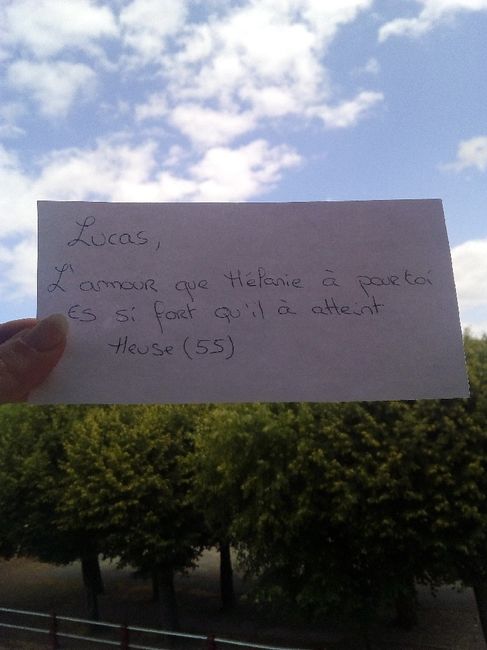 Lucas,
L'amour que Mélanie à pour toi
Es si fort qu'il à atteint
Meuse (55)